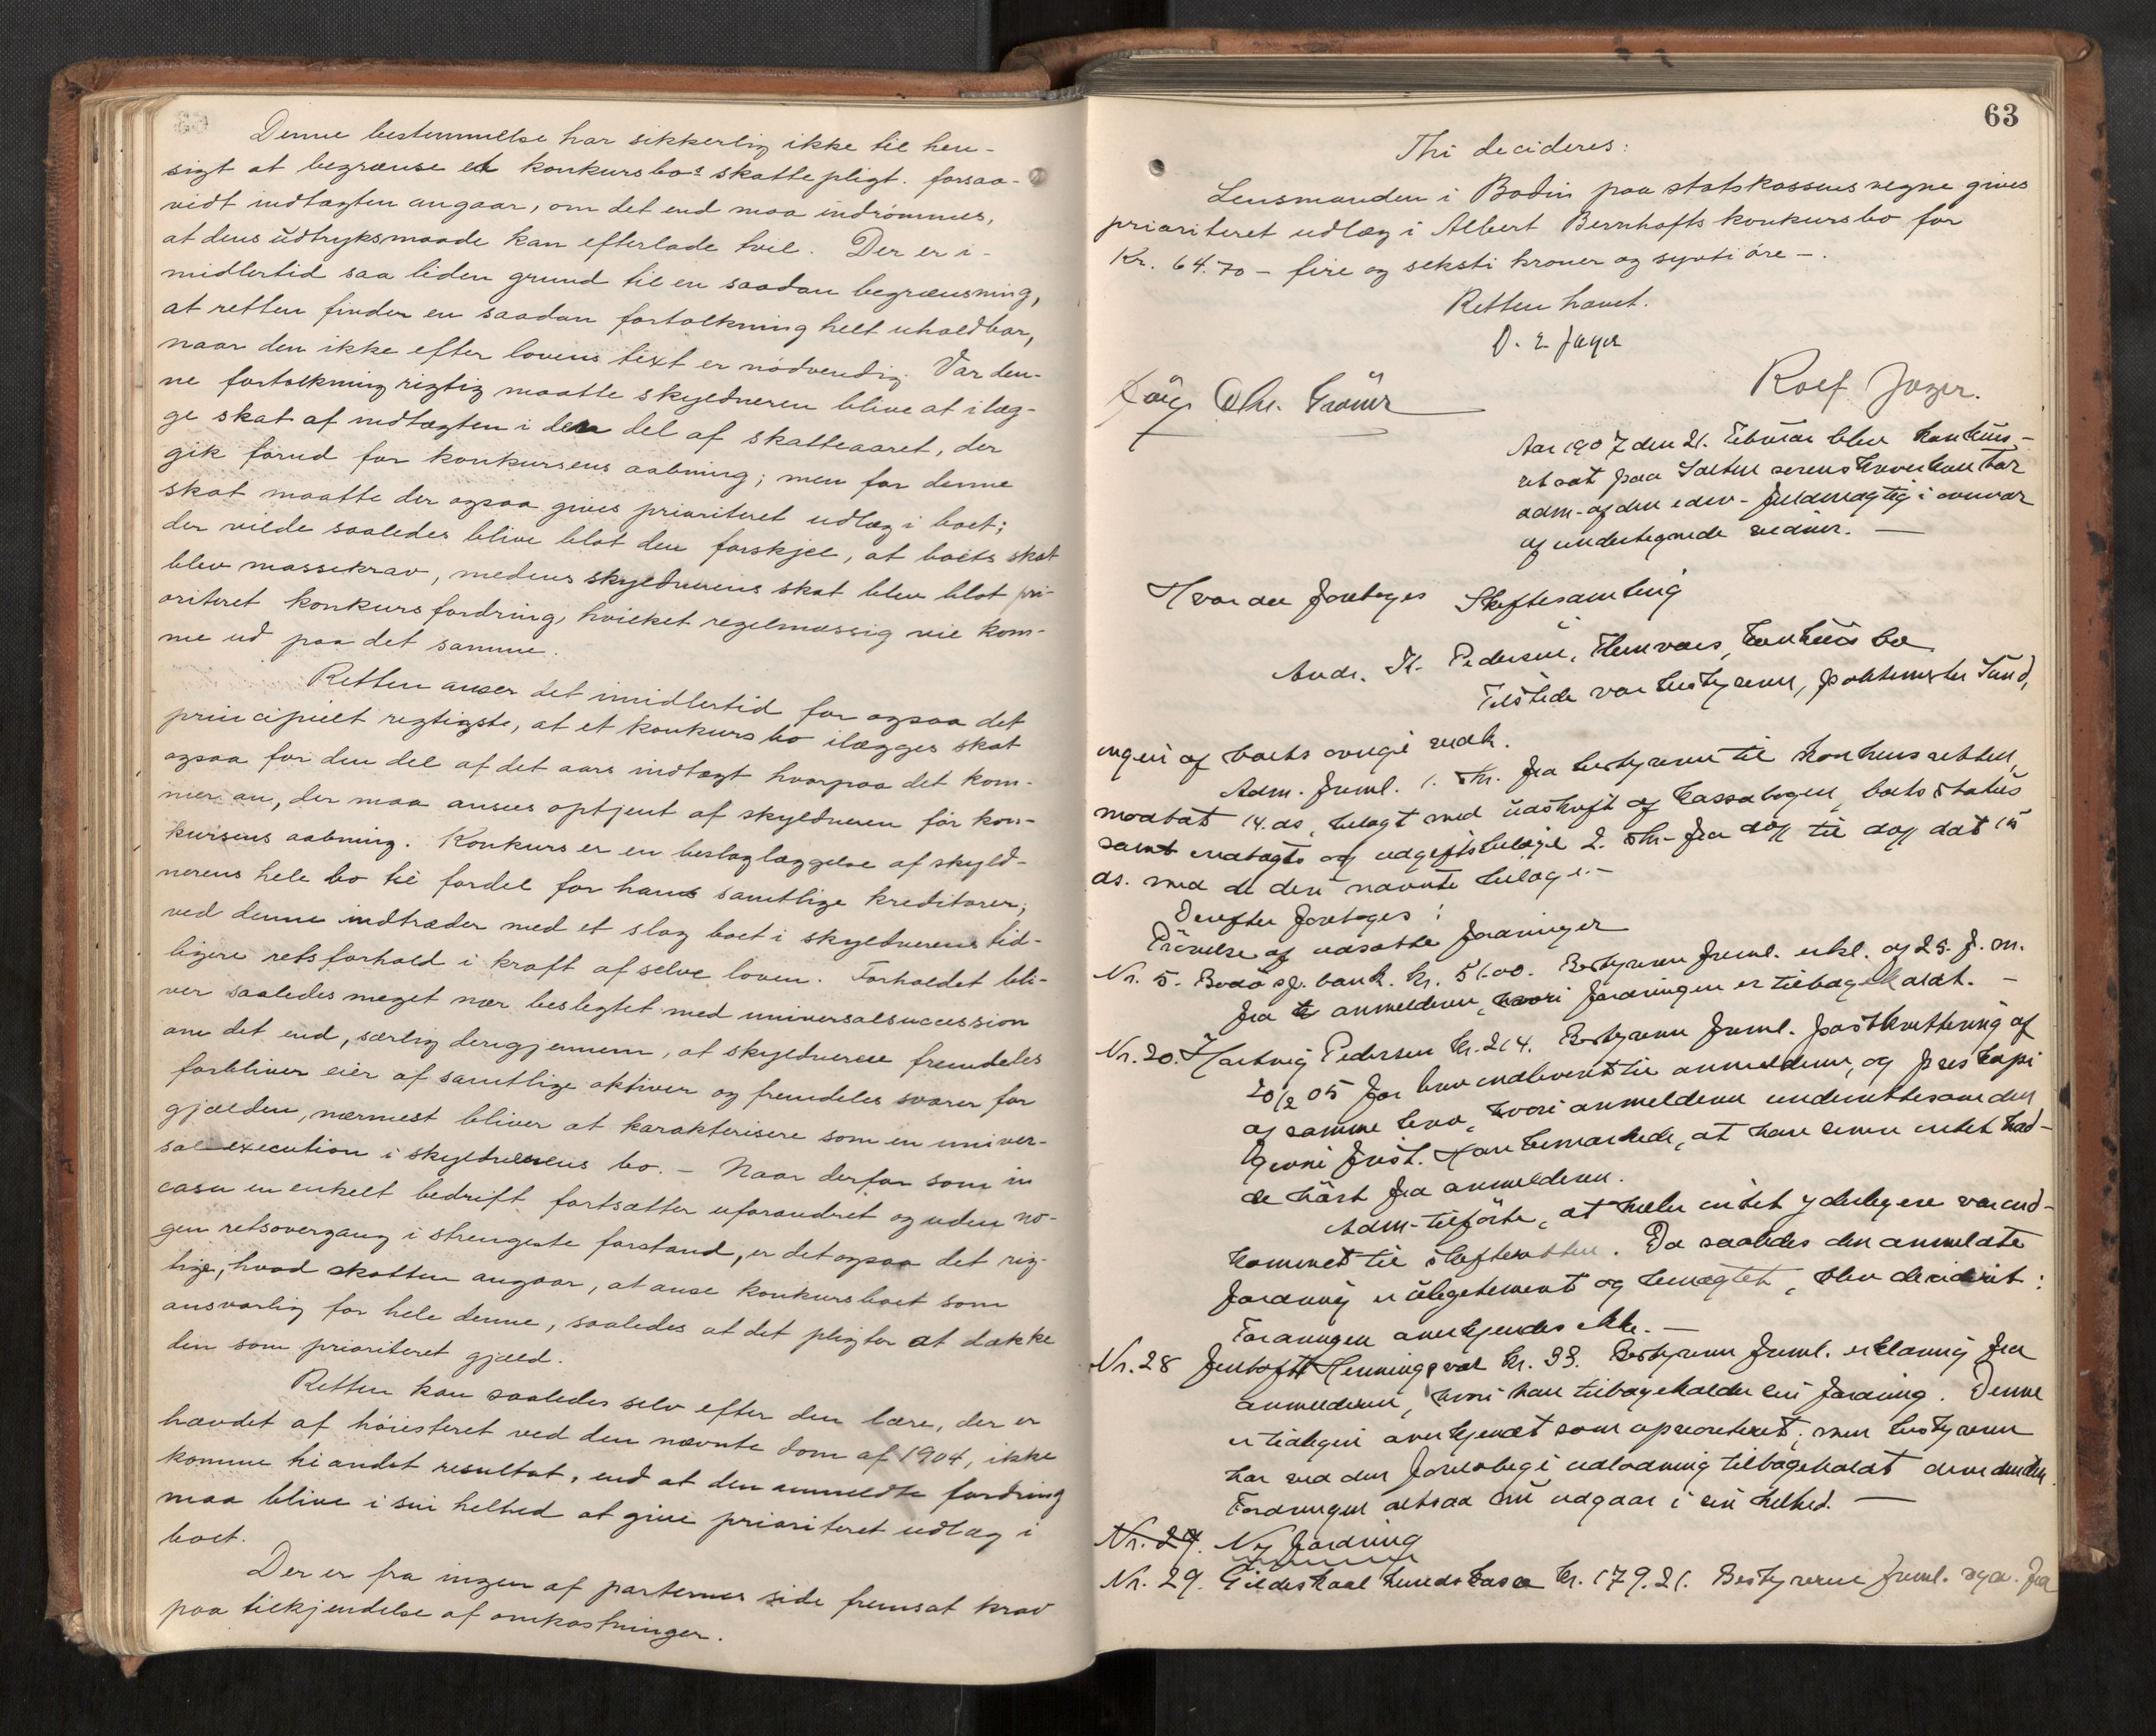 Denne bestemmelse har sikkerlig ikke til hen-
sigt at begrænse et konkursbos skattepligt. forsaa-
vidt indtægten angaar, om det end maa indrømmes,
at dens udtryksmaade kan efterlade tvil. Der er i-
midlertid saa liden grund til en saadan begrænsning,
at retten finder en saadan fortolkning helt uholdbar,
naar den ikke efter lovens text er nödvendig. Var den-
ne fortolkning rigtig maatte skyldneren blive at ilæg-
ge skat af indtægten i den del af skatteaaret, der
gik forud for konkursens aabning; men for denne
skat maatte der ogsaa gives prioriteret udlæg i boet;
der vilde saaledes blive blot den forskjel, at boets skat
blev massekrav, medens skyldnerens skat blev blot pri-
oriteret konkursfordring, hvilket regelmæssig vil kom-
me ud paa det samme.
Retten anser det imidlertid for ogsaa det
principielt rigtigste, at et konkursbo ilægges skat
ogsaa for den del af det aars indtægt hvorpaa det kom-
mer an, der maa ansees optjent af skyldneren för kon-
kursens aabning. Konkurs er en beslaglæggelse af skyld-
nerens hele bo til fordel for hans samtlige kreditorer;
ved denne indtræder med et slag boet i skyldnerens tid-
ligere retsforhold i kraft af selve loven. Forholdet bli-
ver saaledes meget nær beslegtet med universalsuccession
om det end, særlig derigjennem, at skyldneren fremdeles
forbliver eier af samtlige aktiver og fremdeles svarer for
gjælden, nærmest bliver at karakterisere som en univer-
salexecution i skyldnerens bo. - Naar derfor som in
casu en enkelt bedrift fortsætter uforandret og uden no-
gen retsovergang i strengeste forstand, er det ogsaa det rig-
tige, hvad skatten angaar, at anse konkursboet som
ansvarlig for hele denne, saaledes at det pligter at dække
den som prioriteret gjæld.
Retten kan saaledes selv efter den lære, der er
hævdet af höiesteret ved den nævnte dom af 1904, ikke
komme til andet resultat, end at den anmeldte fordring
maa blive i sin helhed at give prioriteret udlæg i
boet.
Der er fra ingen af parternes side fremsat krav
paa tilkjendelse af omkostninger.
63
Thi decideres:
Lensmanden i Bodin paa statskassens vegne gives
prioriteret udlæg i Albert Bernhofts konkursbo for
Kr. 64.70 - fire og seksti kroner og sytti öre -.
Retten hævet.
O. E. Jager
Rolf Jager.
Aar 1907 den 21. februar blev konkurs-
ret sat paa Salten sorenskriverkontor
adm. af den edsv. fuldmægtig i nærvær
af undertegnede vidner. -
Hvor der foretoges Skiftesamling
Andr. K. Pedersen, konkursbo
Tilstede var bestyreren, politimester Sund,
ingen af boets övrige vedk.
Adm. freml. 1. skr. fra bestyreren til konkursretten,
modtat 14. ds. belagt med udskrift af kassabogen, boets status
samt indtægts og udgiftsbilage 2. skr. fra do til do dat 15
ds. med de deri nævnte bilage. -
Derefter foretoges:
Prövelse af udsatte fordringer
Nr. 5. Bodö sp. bank. kr. 51.00. Bestyreren freml. erkl. af 25. f. m.
fra anmelderen, hvori fordringen er tilbagekaldt. -
Nr. 20. Hartvig Pedersen kr. 214. Bestyreren freml. postkvittering af
20/2 05 for brev indleveret til anmelderen, og preskopi
af samme brev, hvori anmelderen underrettes om den
givne frist. Han bemærkede, at han senere intet had-
de hört fra anmelderen.
Adm. tilförte, at heller intet yderligere var ind-
kommet til skifteretten. Da saaledes den anmeldte
fordring er ulegitimert og benegtet, blev decideret:
Fordringen anerkjendes ikke. -
Nr. 28 Jentoft Henningsvær kr. 33. Bestyreren freml. erklæring fra
anmelderen, hvori han tilbagekalder sin fordring. Denne
er tidligere anerkjendt som uprioriteret; men bestyreren
har ved den foreløbige udlodning tilbageholdt dividenden.
Fordringen altsaa nu udgaar i sin helhed. -
Nr. 29. Ny fordring
Nr. 29. Gildeskaal kr. 179.21. Bestyreren freml. fra